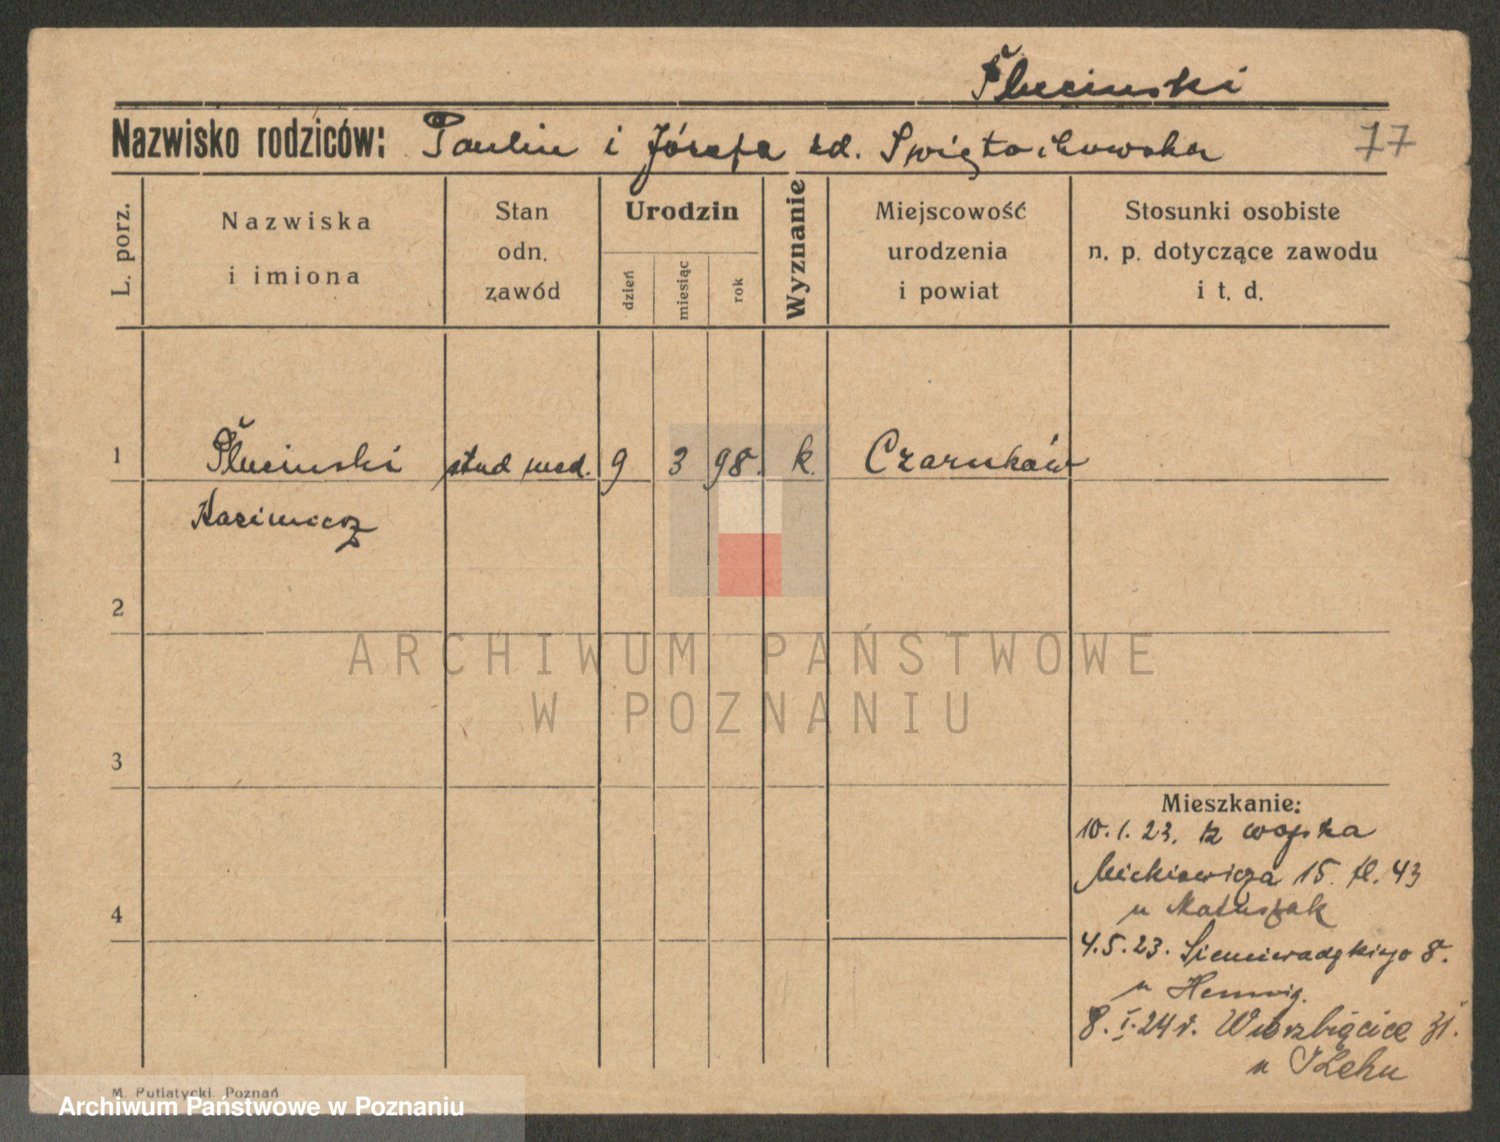 Plucinski
Nazwisko rodziców: Paulin i Józefa zd. Swiętochowska
77
L. porz.
Nazwiska
i imiona
Stan
odn.
zawód
Urodzin
dzień
miesiąc
rok
Wyznanie
Miejscowość
urodzenia
i powiat
Stosunki osobiste
n. p. dotyczące zawodu
i t. d.
1 Plucinski stud med. 9 3 98. k. Czarnków
Kazimierz
2
3
4
Mieszkanie:
10.1.23. z wojska
Mickiewicza 15. 43
u Matuszak
4.5.23. Siemieradzkiego 8.
u
8.I.24 r. Wierzbięcice 31.
u
M. Putiatycki, Poznań
ARCHIWUM PAŃSTWOWE
W POZNANIU
Archiwum Państwowe w Poznaniu